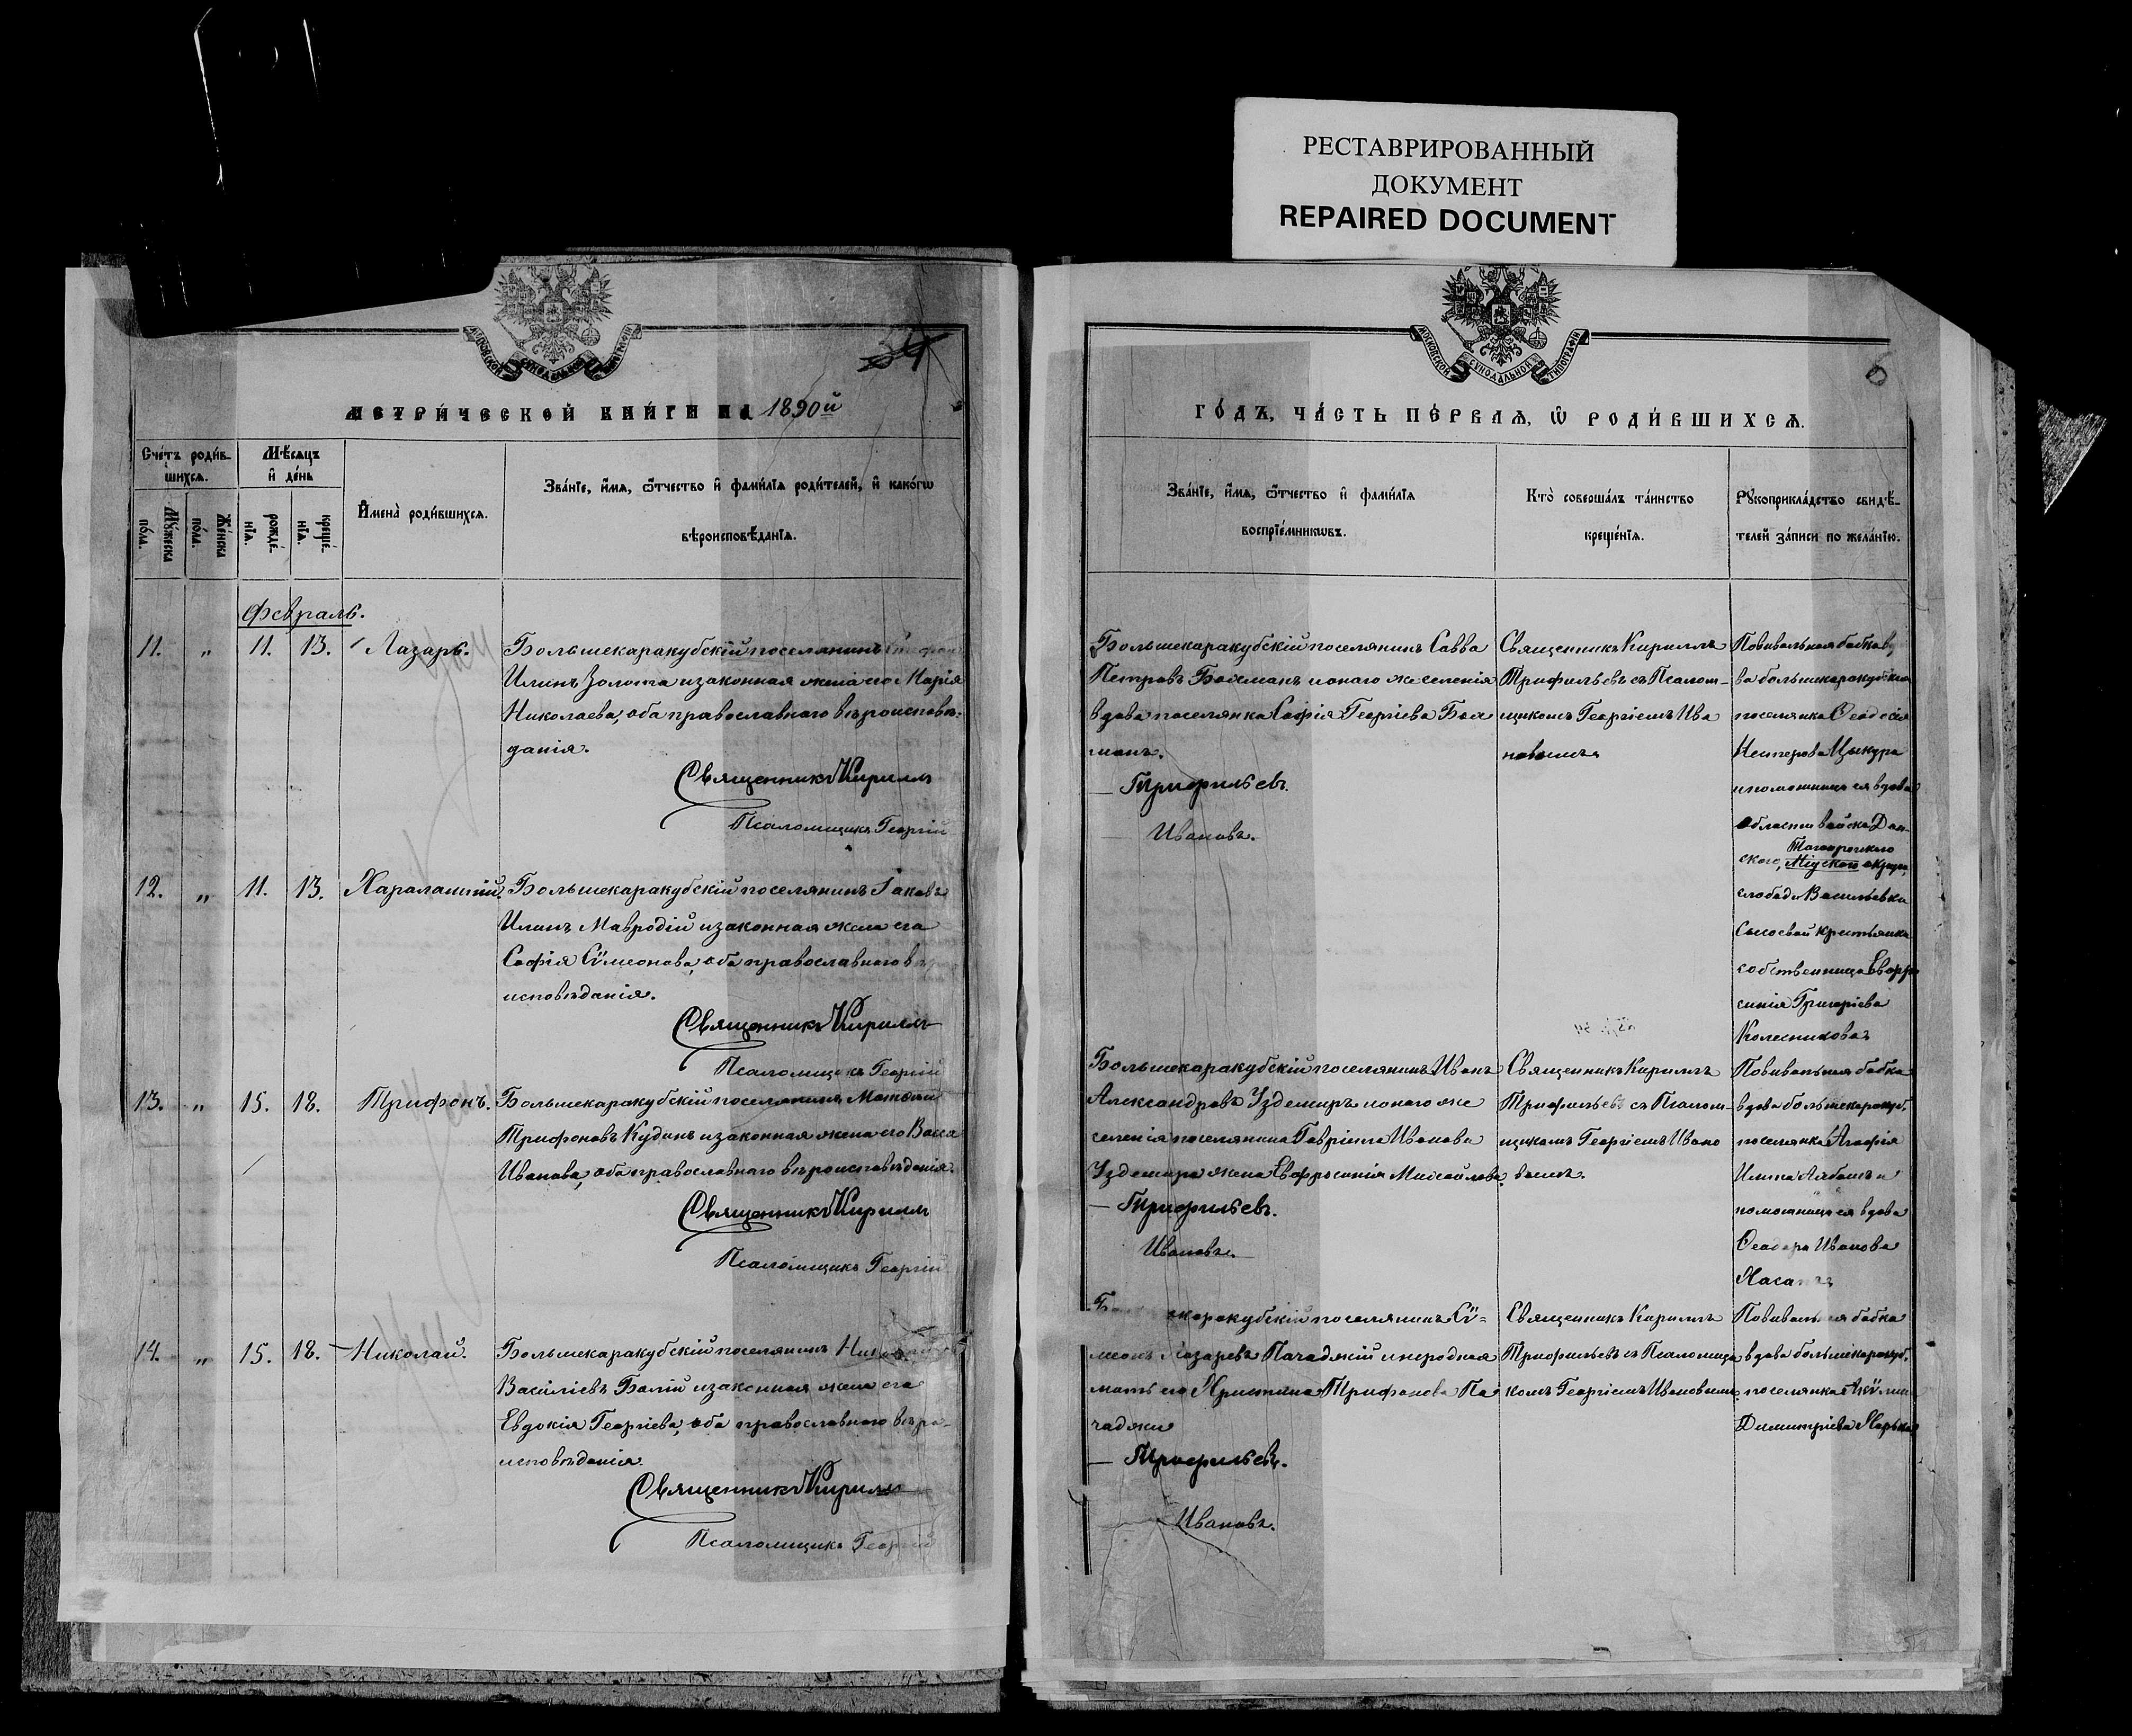 РЕСТАВРИРОВАННЫЙ
ДОКУМЕНТ
REPAIRED DOCUMENT
МОСКОВСКОЙ СѴНОДАЛЬНОЙ ТИПОГРАФІИ
МЕТРИ́ЧЕСКОЙ КНИ́ГИ НА 1890й
Сче́тъ роди́в-
шихсѧ.
Мѣ́сѧцъ
и҆ де́нь
Мꙋ́жеска
по́ла.
Же́нска
по́ла.
рожде́-
нїѧ.
креще́-
нїѧ.
И҆мена̀ роди́вшихсѧ.
Зва́нїе, и҆́мѧ, ѻ҆́тчество и҆ фами́лїѧ роди́телей, и҆ како́гѡ
вѣроисповѣ́данїѧ.
Февраль.
11. " 11. 13. Лазарь. Большекаракубскій поселянинъ
Илiинъ Золота и законная жена его Марія
Николаева, оба православнаго вѣроисповѣ-
данія.
Священникъ Кириллъ
Псаломщикъ Георгій
12. " 11. 13. Харалампій. Большекаракубскій поселянинъ Іаковъ
Илiинъ Мавродій и законная жена его
Софія Сѵмеонова, оба православнаго
исповѣданія.
Священникъ Кириллъ
Псаломщикъ Георгій
13. " 15. 18. Трифонъ. Большекаракубскій поселянинъ
Трифоновъ Кудинъ и законная жена его Васса
Иванова, оба православнаго вѣроисповѣданія.
Священникъ Кириллъ
Псаломщикъ Георгій
14. " 15. 18. Николай. Большекаракубскій поселянинъ
Василіевъ Балій и законная жена его
Евдокія Георгіева, оба православнаго вѣро-
исповѣданія.
Священникъ Кириллъ
Псаломщикъ Георгій
МОСКОВСКОЙ СѴНОДАЛЬНОЙ ТИПОГРАФІИ
6
ГО́ДЪ, ЧА́СТЬ ПЕ́РВАѦ, Ѡ҆ РОДИ́ВШИХСѦ.
Зва́нїе, и҆́мѧ, ѻ҆́тчество и҆ фами́лїѧ
воспрїе́мникѡвъ.
Кто̀ соверша́лъ та́инство
креще́нїѧ.
Рꙋкоприкла́дство свидѣ́-
телей за́писи по жела́нїю.
Большекаракубскій поселянинъ Савва
Петровъ Бахманъ и онаго же селенія
вдова поселянка Софія Георгіева Бах
манъ.
Трифильевъ.
Ивановъ.
Священникъ Кириллъ
Трифильевъ съ Псалом-
щикомъ Георгіемъ Ива
новымъ
Повивальная бабка
ва большекаракубская
поселянка Феодосія
Нестерова Цыкура
и помощница ея вдова
области войска Дон-
Таганрогскаго
скаго, Міусскаго округа,
слободы Васильевки
крестьянка
собственница Евфро
синія Григоріева
Колесникова
Большекаракубскій поселянинъ Иванъ
Александровъ Уздемиръ и онаго же
селенія поселянина Гавріила Иванова
Уздемира жена Евфросинія Михайлова.
Трифильевъ.
Ивановъ.
Священникъ Кириллъ
Трифильевъ съ Псалом-
щикомъ Георгіемъ Ивано
вымъ.
Повивальная бабка
вдова большекаракуб.
поселянка Агафія
Илiина
помощница ея вдова
Феодора Иванова
каракубскій поселянинъ Сѵ-
меонъ Лазаревъ Пачаджій и неродная
мать его Христина Трифонова Па
чаджи
Трифильевъ.
Ивановъ.
Священникъ Кириллъ
Трифильевъ съ Псаломщи
комъ Георгіемъ Ивановымъ.
Повивальная бабка
вдова большекаракуб.
поселянка
Димитріева